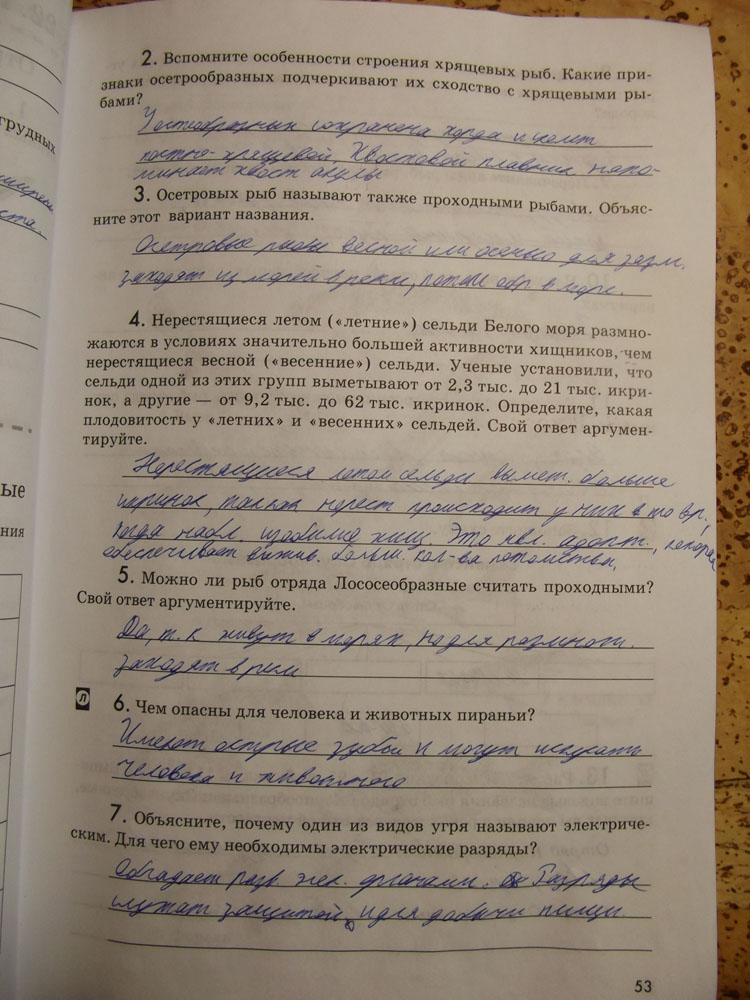 2. Вспомните особенности строения хрящевых рыб. Какие при-
знаки осетрообразных подчеркивают их сходство с хрящевыми ры-
бами?
сохранена хорда и
костно-хрящевой, Хвостовой плавник напо-
минает хвост акулы
3. Осетровых рыб называют также проходными рыбами. Объяс-
ните этот вариант названия.
Осетровые рыбы весной или осенью для разм.
заходят из морей в реки, потом обр. в море.
4. Нерестящиеся летом («летние») сельди Белого моря размно-
жаются в условиях значительно большей активности хищников, чем
нерестящиеся весной («весенние») сельди. Ученые установили, что
сельди одной из этих групп выметывают от 2,3 тыс. до 21 тыс. икри-
нок, а другие — от 9,2 тыс. до 62 тыс. икринок. Определите, какая
плодовитость у «летних» и «весенних» сельдей. Свой ответ аргумен-
тируйте.
Нерестящиеся летом сельди вымет. больше
икринок, так как нерест происходит у них в то вр.,
когда набл. изобилие хищ. Это явл. адапт., которая
обеспечивает выжив. больш. кол-ва потомства.
5. Можно ли рыб отряда Лососеобразные считать проходными?
Свой ответ аргументируйте.
Да, т. к живут в морях, но для размнож.
заходят в реки
л
6. Чем опасны для человека и животных пираньи?
Имеют острые зубы и могут искусать
человека и животного
7. Объясните, почему один из видов угря называют электриче-
ским. Для чего ему необходимы электрические разряды?
Обладает разв. элек. органами. Разряды
служат защитой и для добычи пищи.
53
грудных
ста.
ые
ния